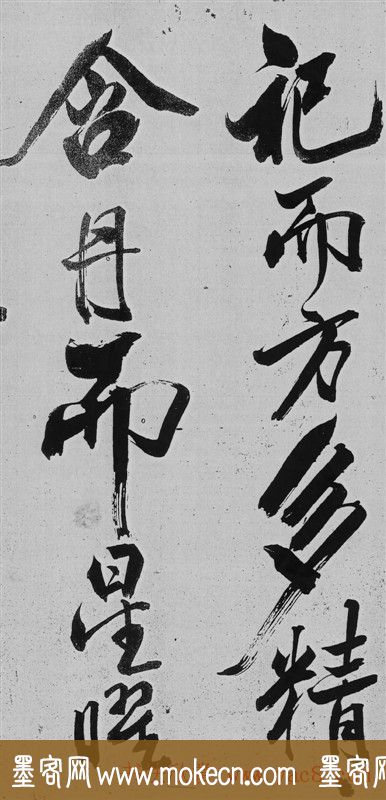 祀而方多精
含丹而星曜
墨客网www.mokecn.com墨客网